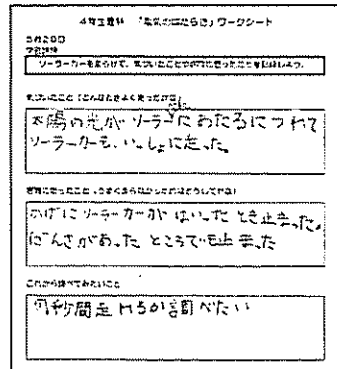 4年生理科 「電気のはたらき」ワークシート
5月20日
学習課題
ソーラーカーを走らせて、気づいたことやぎもんに思ったことを記録しよう。
気づいたこと（どんなときよく走ったかな）
太陽の光がソーラーにあたるにつれて
ソーラーカーも、いっしょに走った。
ぎもんに思ったこと（うまく走らなかったのはどうしてかな）
かげにソーラーカーがはいったとき止まった。
だんさがあったところでも止まった
これから調べてみたいこと
何秒間走れるか調べたい